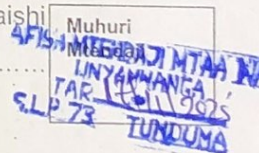 aishi
Muhuri
Mtendaji
AFISA MTENDAJI MTAA
UNYAMWANGA
TAR 2025
S.L.P 73
TUNDUMA